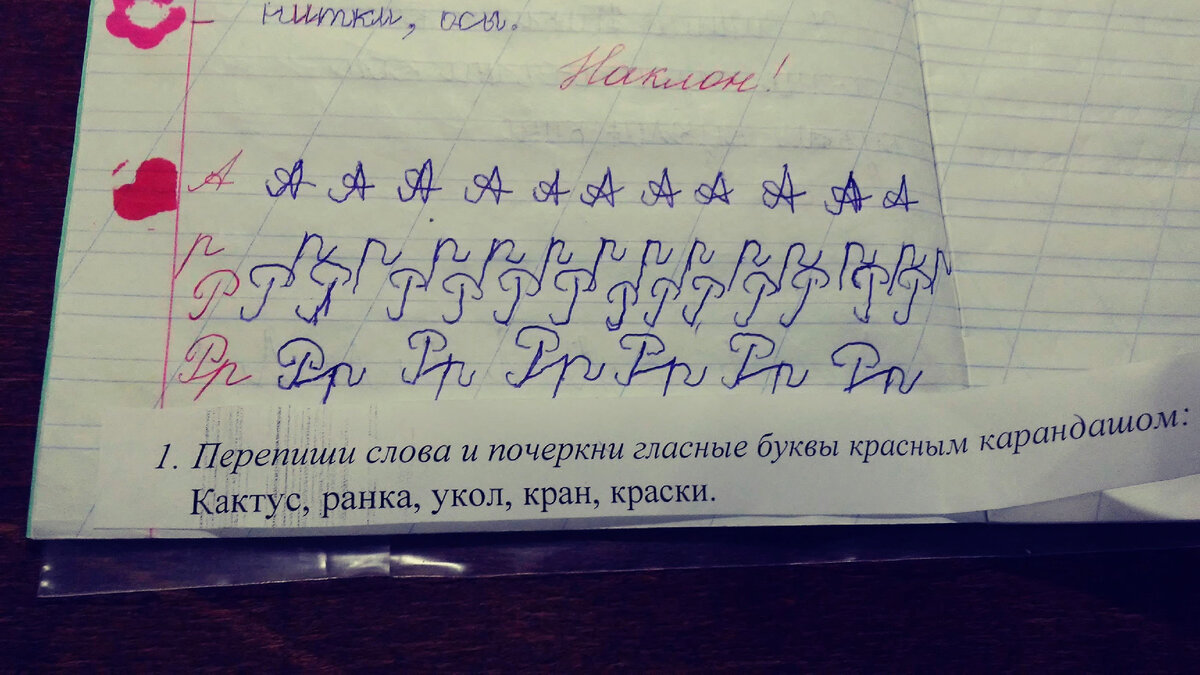 нитки, осы.
Наклон!
А А А А А А А А А А А А
р р р р р р р р р р р р р р
Р Р Р Р Р Р Р Р Р Р Р Р Р Р
Рр Рр Рр Рр Рр Рр Рр
1. Перепиши слова и почеркни гласные буквы красным карандашом:
Кактус, ранка, укол, кран, краски.